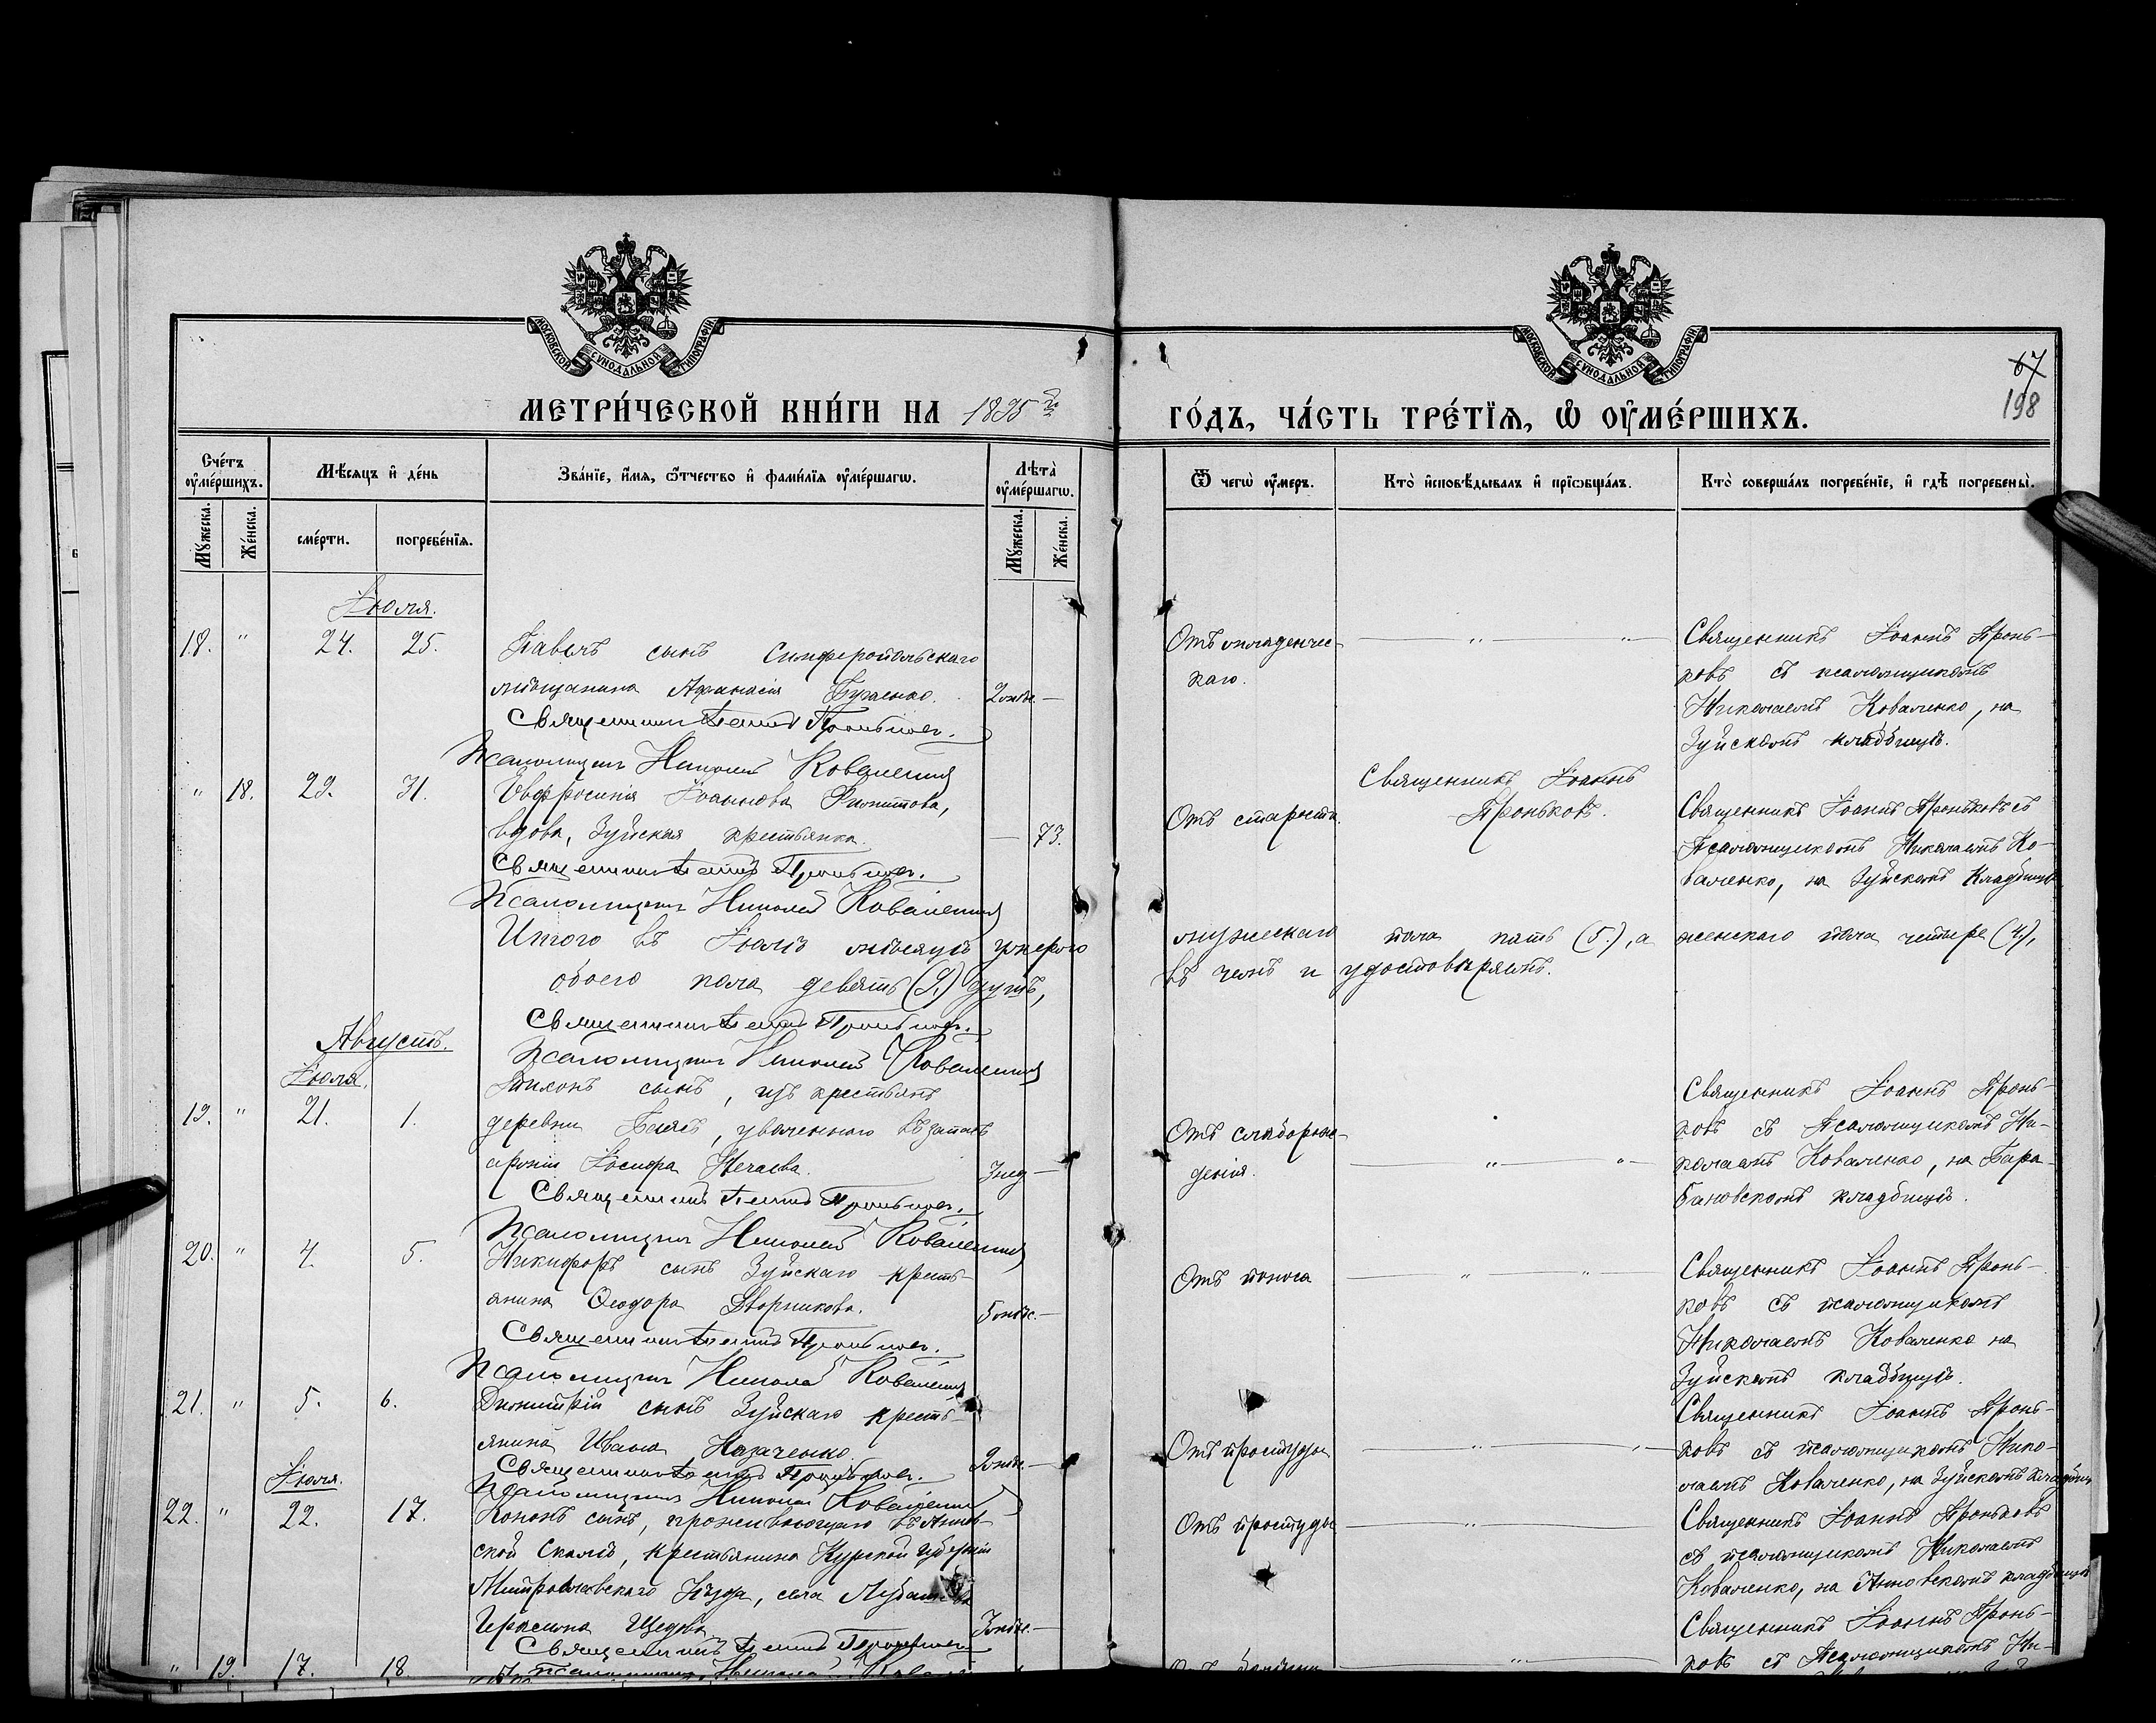 МОСКОВСКОЙ СѴНОДАЛЬНОЙ ТИПОГРАФІИ
МОСКОВСКОЙ СѴНОДАЛЬНОЙ ТИПОГРАФІИ
67
198
МЕТРИ́ЧЕСКОЙ КНИ́ГИ НА 1895 й
ГО́ДЪ, ЧА́СТЬ ТРЕ́ТЇѦ, Ѽ ОУ҆МЕ́РШИХЪ.
Сче́тъ оу҆ме́ршихъ.
Мꙋ́жеска.
Же́нска.
Мѣ́сяцъ и҆ де́нь
сме́рти.
погребе́нїѧ.
Зва́нїе, и҆́мѧ, ѻ҆́тчество и҆ фами́лїѧ оу҆ме́ршагѡ.
Лѣта̀ оу҆ме́ршагѡ.
Мꙋ́жеска.
Же́нска.
Ѿ чегѡ̀ оу҆́меръ.
Кто̀ и҆сповѣ́дывалъ и҆ прїѡбща́лъ.
Кто̀ соверша́лъ погребе́нїе, и҆ гдѣ̀ погребены̀.
Іюля.
18. " 24. 25.
Павелъ сынъ Симферопольскаго
мѣщанина Афанасія Бугаенко. 2 мѣс. —
Священникъ Іоаннъ Проньковъ.
Псаломщикъ Николай Коваленко
Отъ младенчес-
каго.
Священникъ Іоаннъ Пронь-
ковъ съ псаломщикомъ
Николаемъ Коваленко, на
Зуйскомъ кладбищѣ.
" 18. 29. 31.
Евфросинія Іоаннова Филиппова,
вдова, Зуйская крестьянка. — 73.
Священникъ Іоаннъ Проньковъ.
Псаломщикъ Николай Коваленко
Отъ старости.
Священникъ Іоаннъ
Проньковъ.
Священникъ Іоаннъ Проньковъ съ
Псаломщикомъ Николаемъ Ко-
валенко, на Зуйскомъ Кладбищѣ
Итого въ Іюлѣ мѣсяцѣ умерло мужескаго пола пять (5.), а женскаго пола четыре (4.),
обоего пола девять (9.) душъ, въ чемъ и удостовѣряемъ.
Священникъ Іоаннъ Проньковъ.
Псаломщикъ Николай Коваленко
Августъ.
Іюля.
19. " 21. 1.
Тихонъ сынъ, изъ крестьянъ
деревни , уволеннаго въ запасъ
арміи Іосифа Нечаева. 3 нед —
Священникъ Іоаннъ Проньковъ.
Псаломщикъ Николай Коваленко
Отъ слаборож-
денія.
Священникъ Іоаннъ Пронь-
ковъ съ Псаломщикомъ Ни-
колаемъ Коваленко, на Бара-
бановскомъ кладбищѣ.
20. " 4. 5.
Никифоръ сынъ Зуйскаго кресть-
янина Ѳеодора Дворникова. 5 мѣс. —
Священникъ Іоаннъ Проньковъ.
Псаломщикъ Николай Коваленко
Отъ поноса
Священникъ Іоаннъ Пронь-
ковъ съ псаломщикомъ
Николаемъ Коваленко на
Зуйскомъ кладбищѣ.
21. " 5. 6.
Димитрій сынъ Зуйскаго кресть-
янина Ивана Казаченко. 2 мѣс. —
Священникъ Іоаннъ Проньковъ.
Псаломщикъ Николай Коваленко
Отъ простуды
Священникъ Іоаннъ Пронь-
ковъ съ псаломщикомъ Нико-
лаемъ Коваленко, на Зуйскомъ кладбищ
Іюля.
22. " 22. 17.
Кононъ сынъ, проживающаго въ Аннов-
ской , крестьянина Курской губерніи
уѣзда, села
Герасима 3 мѣс. —
Священникъ Іоаннъ Проньковъ
Псаломщикъ Николай
Отъ простуды
Священникъ Іоаннъ Проньковъ
съ псаломщикомъ Николаемъ
Коваленко, на Анновскомъ кладбищѣ
" 19. 17. 18.
Священникъ Іоаннъ Пронь-
ковъ съ Псаломщикомъ Ни-